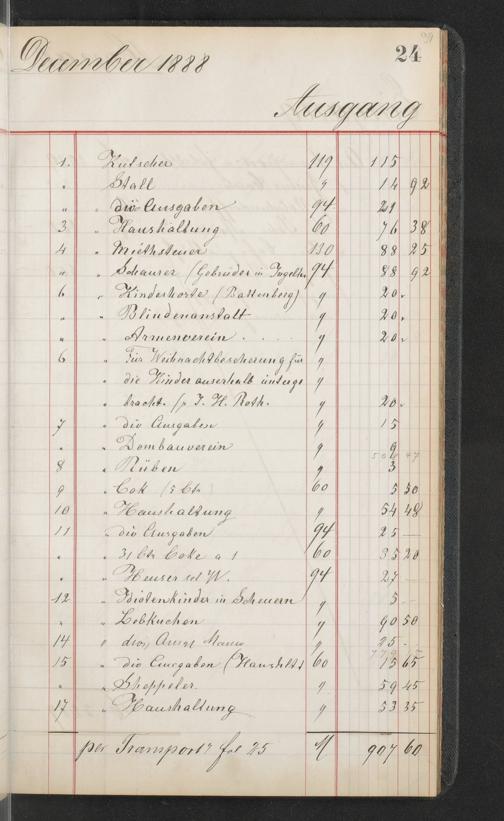 24
December 1888
Ausgang
1. Kutscher 119 115
" Stall " 14 92
" " div Ausgaben 94 21
3 " Haushaltung 60 76 38
4 " Miethsteuer 110 88 25
" " (Gebrüder in 94 88 92
6 " Kinderhorte (Battenberg) " 20.
" " Blindenanstalt " 20.
" " Armenverein . . . . " 20.
6 " Für Weihnachtbescherung für "
" die Kinder auserhalb unterge "
" bracht. J. H. Roth. " 20.
7 " div Ausgaben " 15
" " Dombauverein " 9
8 " Rüben " 3
9 " Cok 60 5 50
10 " Haushaltung " 54 48
11 " div Ausgaben 94 25 —
" " 31 Ctr Coke a 1 60 35 20
" " 94 27 —
12 " Idiotenkinder in Scheuern " 5
" " Lebkuchen " 90 50
14 " " 25 -
15 " div Ausgaben 60 15 65
" " Sheppeler " 59 45
17 " Haushaltung " 53 35
per Transport fol 25 M 907 60